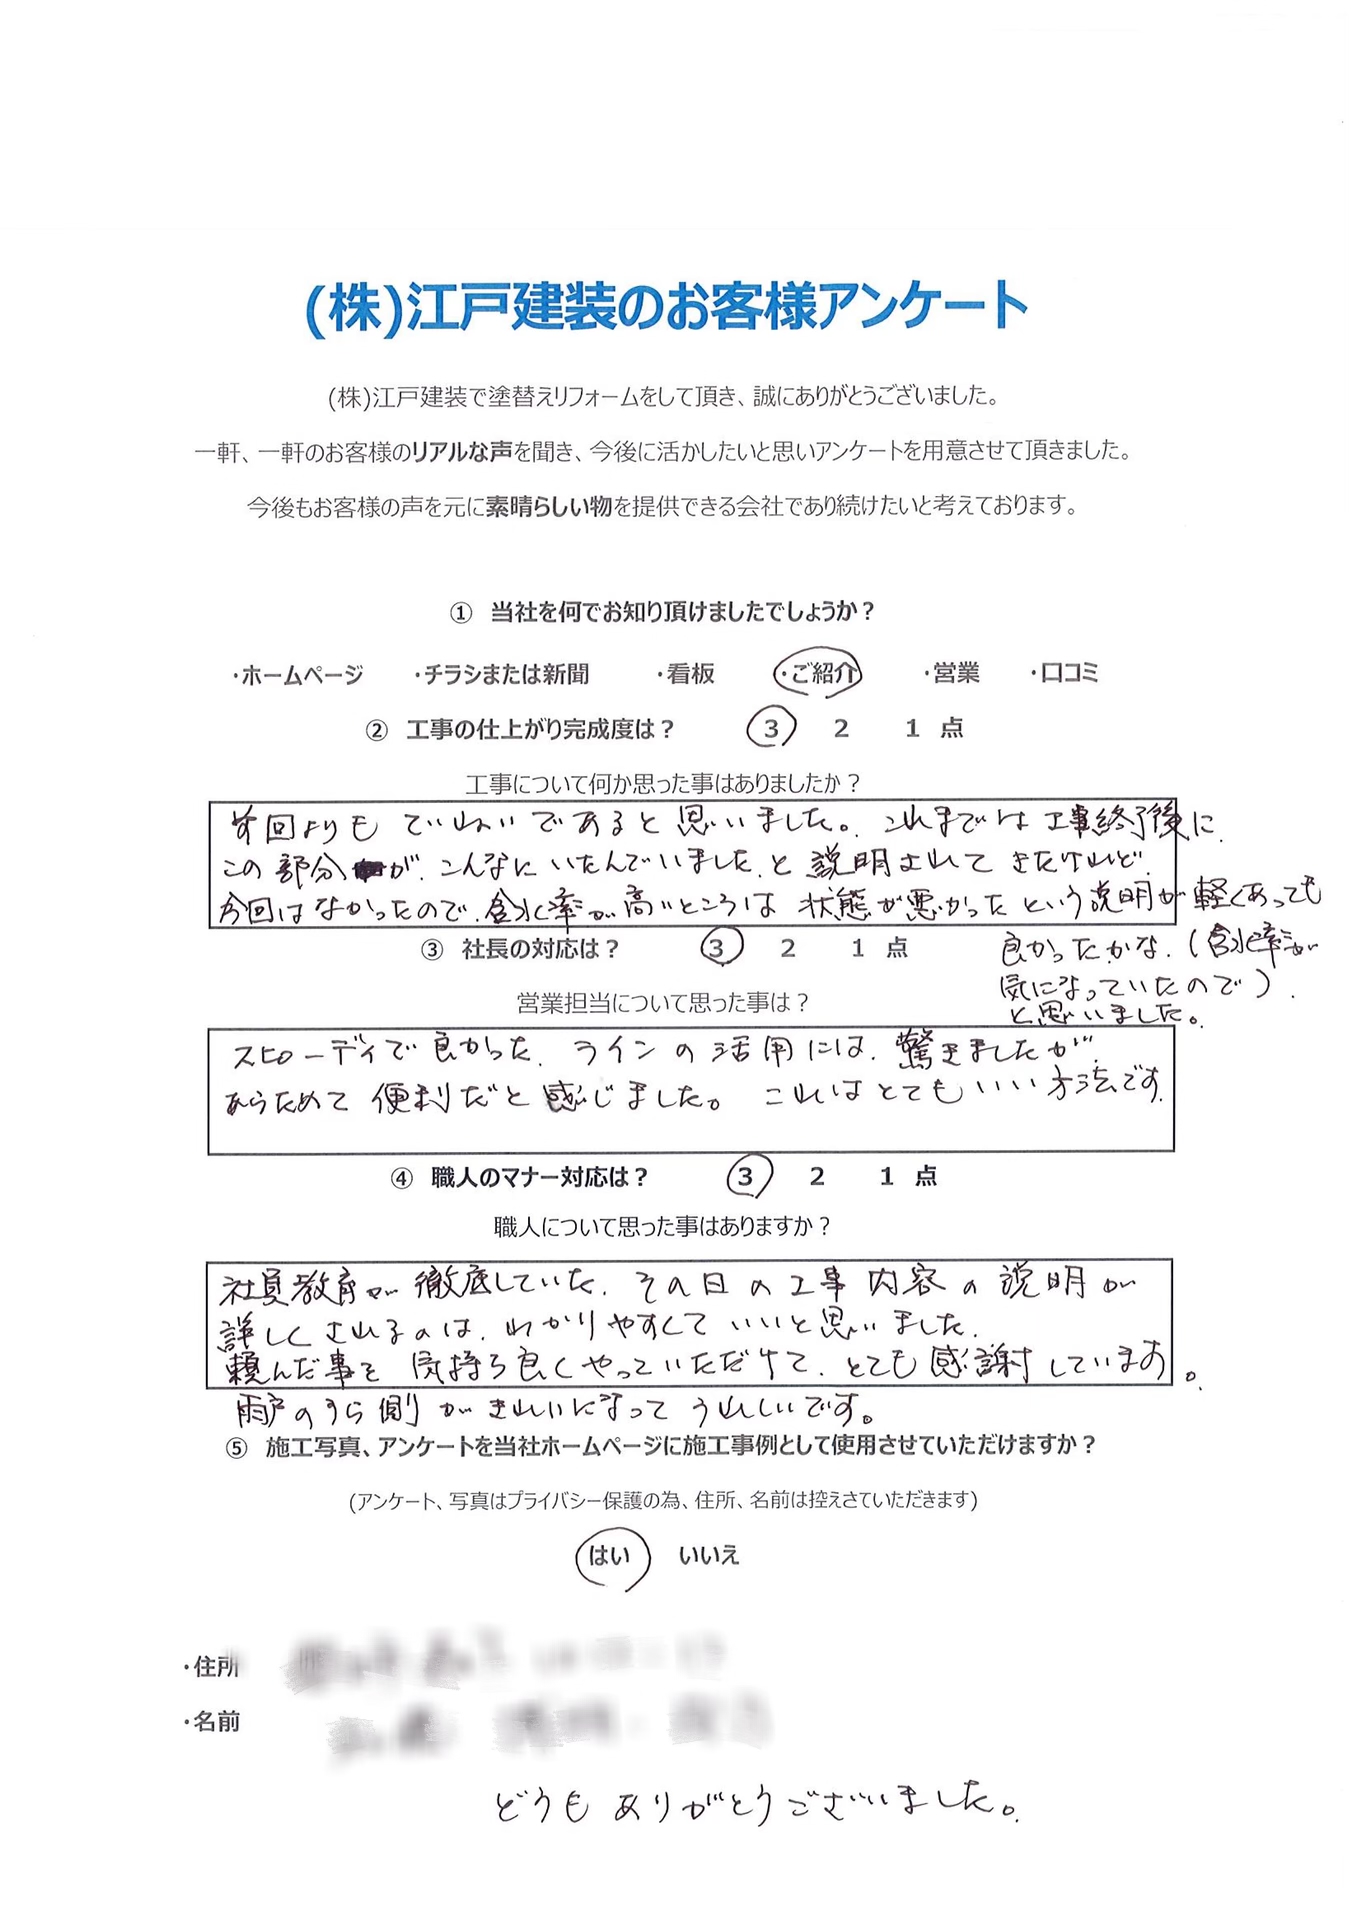 (株)江戸建装のお客様アンケート
(株)江戸建装で塗替えリフォームをして頂き、誠にありがとうございました。
一軒、一軒のお客様のリアルな声を聞き、今後に活かしたいと思いアンケートを用意させて頂きました。
今後もお客様の声を元に素晴らしい物を提供できる会社であり続けたいと考えております。
① 当社を何でお知り頂けましたでしょうか？
・ホームページ ・チラシまたは新聞 ・看板 ・ご紹介 ・営業 ・口コミ
② 工事の仕上がり完成度は？ 3 2 1 点
工事について何か思った事はありましたか？
前回よりもていねいであると思いました。これまでは工事終了後に
この部分が、こんなにいたんでいましたと説明されてきたけれど
今回はなかったので、含水率が高いところは状態が悪かったという説明が軽くあっても
良かったかな。(含水率が
気になっていたので)
と思いました。
③ 社長の対応は？ 3 2 1 点
営業担当について思った事は？
スピーディで良かった。ラインの活用には、驚きましたが、
あらためて便利だと感じました。これはとてもいい方法です。
④ 職人のマナー対応は？ 3 2 1 点
職人について思った事はありますか？
社員教育が徹底していた。その日の工事内容の説明が
詳しくされるのは、わかりやすくていいと思いました。
頼んだ事を気持ち良くやっていただけて、とても感謝しています。
雨戸のうら側がきれいになってうれしいです。
⑤ 施工写真、アンケートを当社ホームページに施工事例として使用させていただけますか？
(アンケート、写真はプライバシー保護の為、住所、名前は控えさていただきます)
はい いいえ
・住所
・名前
どうもありがとうございました。